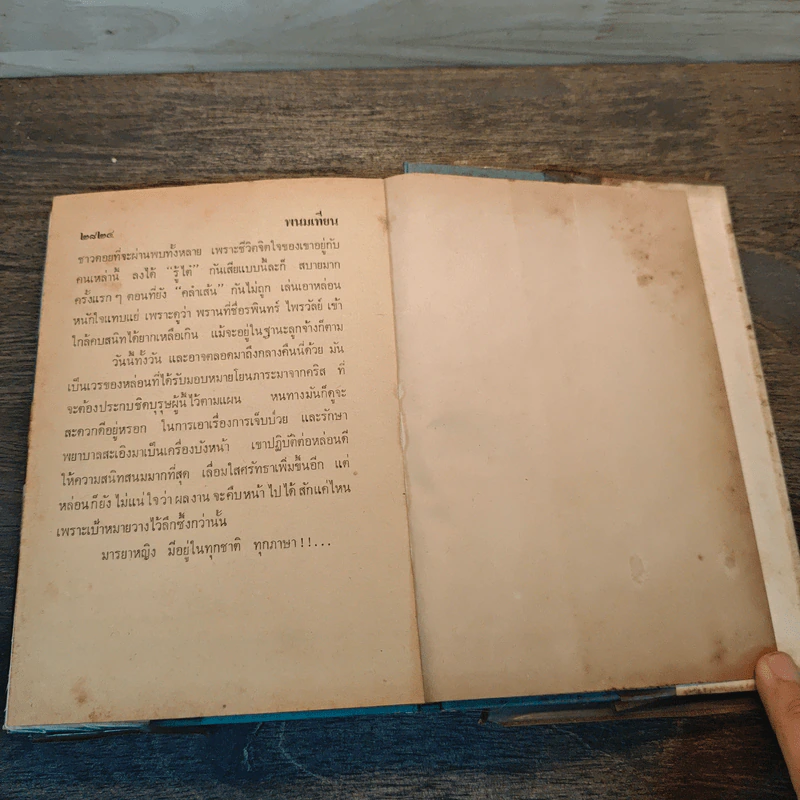 ๒๗๒๔ พนมเทียน
ชาวดอยที่จะผ่านพบทั้งหลาย เพราะชีวิตจิตใจของเขาอยู่กับ
คนเหล่านี้ ลงได้ “รู้ไต๋” กันเสียแบบนี้ละก็ สบายมาก
ครั้งแรก ๆ ตอนที่ยัง “คลำเส้น” กันไม่ถูก เล่นเอาหล่อน
หนักใจแทบแย่ เพราะดูว่า พรานที่ชื่อรพินทร์ ไพรวัลย์ เข้า
ใกล้คบสนิทได้ยากเหลือเกิน แม้จะอยู่ในฐานะลูกจ้างก็ตาม
วันนี้ทั้งวัน และอาจตลอดมาถึงกลางคืนนี่ด้วย มัน
เป็นเวรของหล่อนที่ได้รับมอบหมายโยนภาระมาจากคริส ที่
จะต้องประกบชิดบุรุษผู้นี้ไว้ตามแผน หนทางมันก็ดูจะ
สะดวกดีอยู่หรอก ในการเอาเรื่องการเจ็บป่วย และรักษา
พยาบาลสะเอิงมาเป็นเครื่องบังหน้า เขาปฏิบัติต่อหล่อนดี
ให้ความสนิทสนมมากที่สุด เลื่อมใสศรัทธาเพิ่มขึ้นอีก แต่
หล่อนก็ยัง ไม่แน่ใจว่า ผลงาน จะคืบหน้า ไปได้ สักแค่ไหน
เพราะเป้าหมายวางไว้ลึกซึ้งกว่านั้น
มารยาหญิง มีอยู่ในทุกชาติ ทุกภาษา ! ! . . .